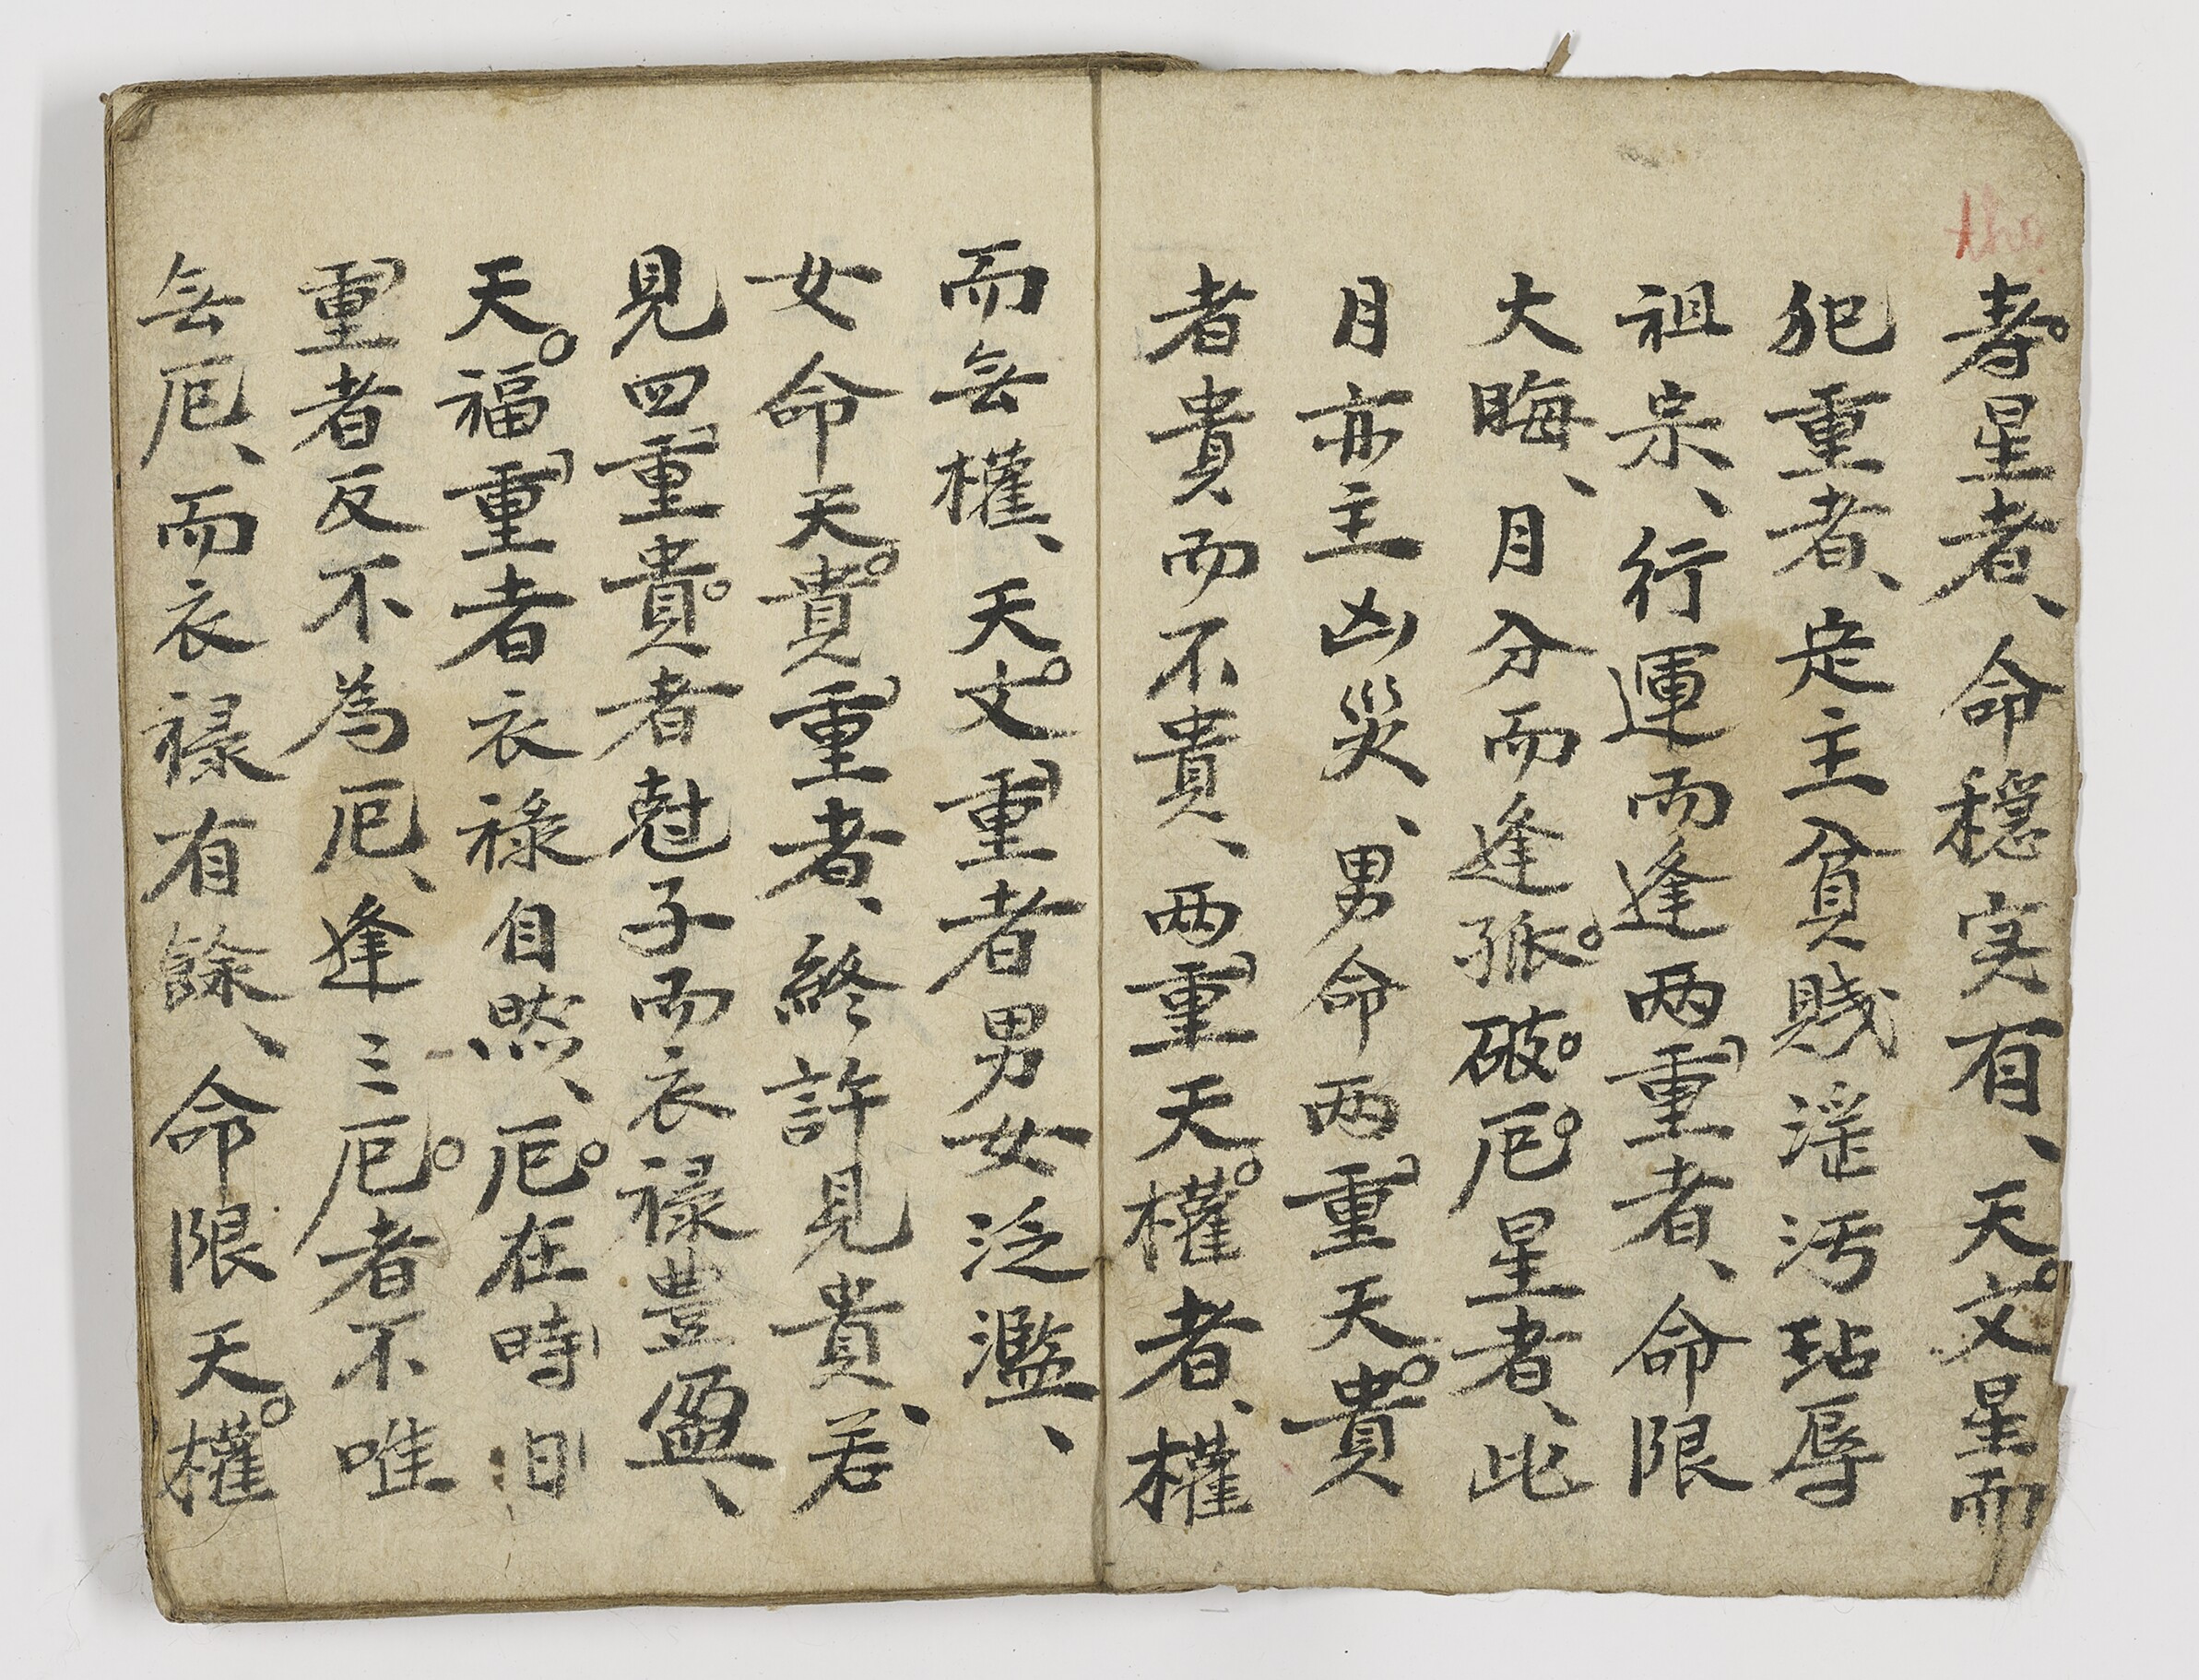 寿星者、命穏実有、天文星而
犯重者、定主貧賤淫汚玷辱
祖宗、行運而逢两重者、命限
大晦、月分而逢孤破厄星者、此
月亦主凶災、男命两重天貴
者貴而不貴、两重天權者、權
而無權、天文重者男女泛濫、
女命天貴重者、終許見貴、若
見四重貴者尅子而衣禄豊盈、
天福重者衣禄自然、厄在時
重者反不為厄、逢三厄者不唯
無厄、而衣禄有餘、命限天權